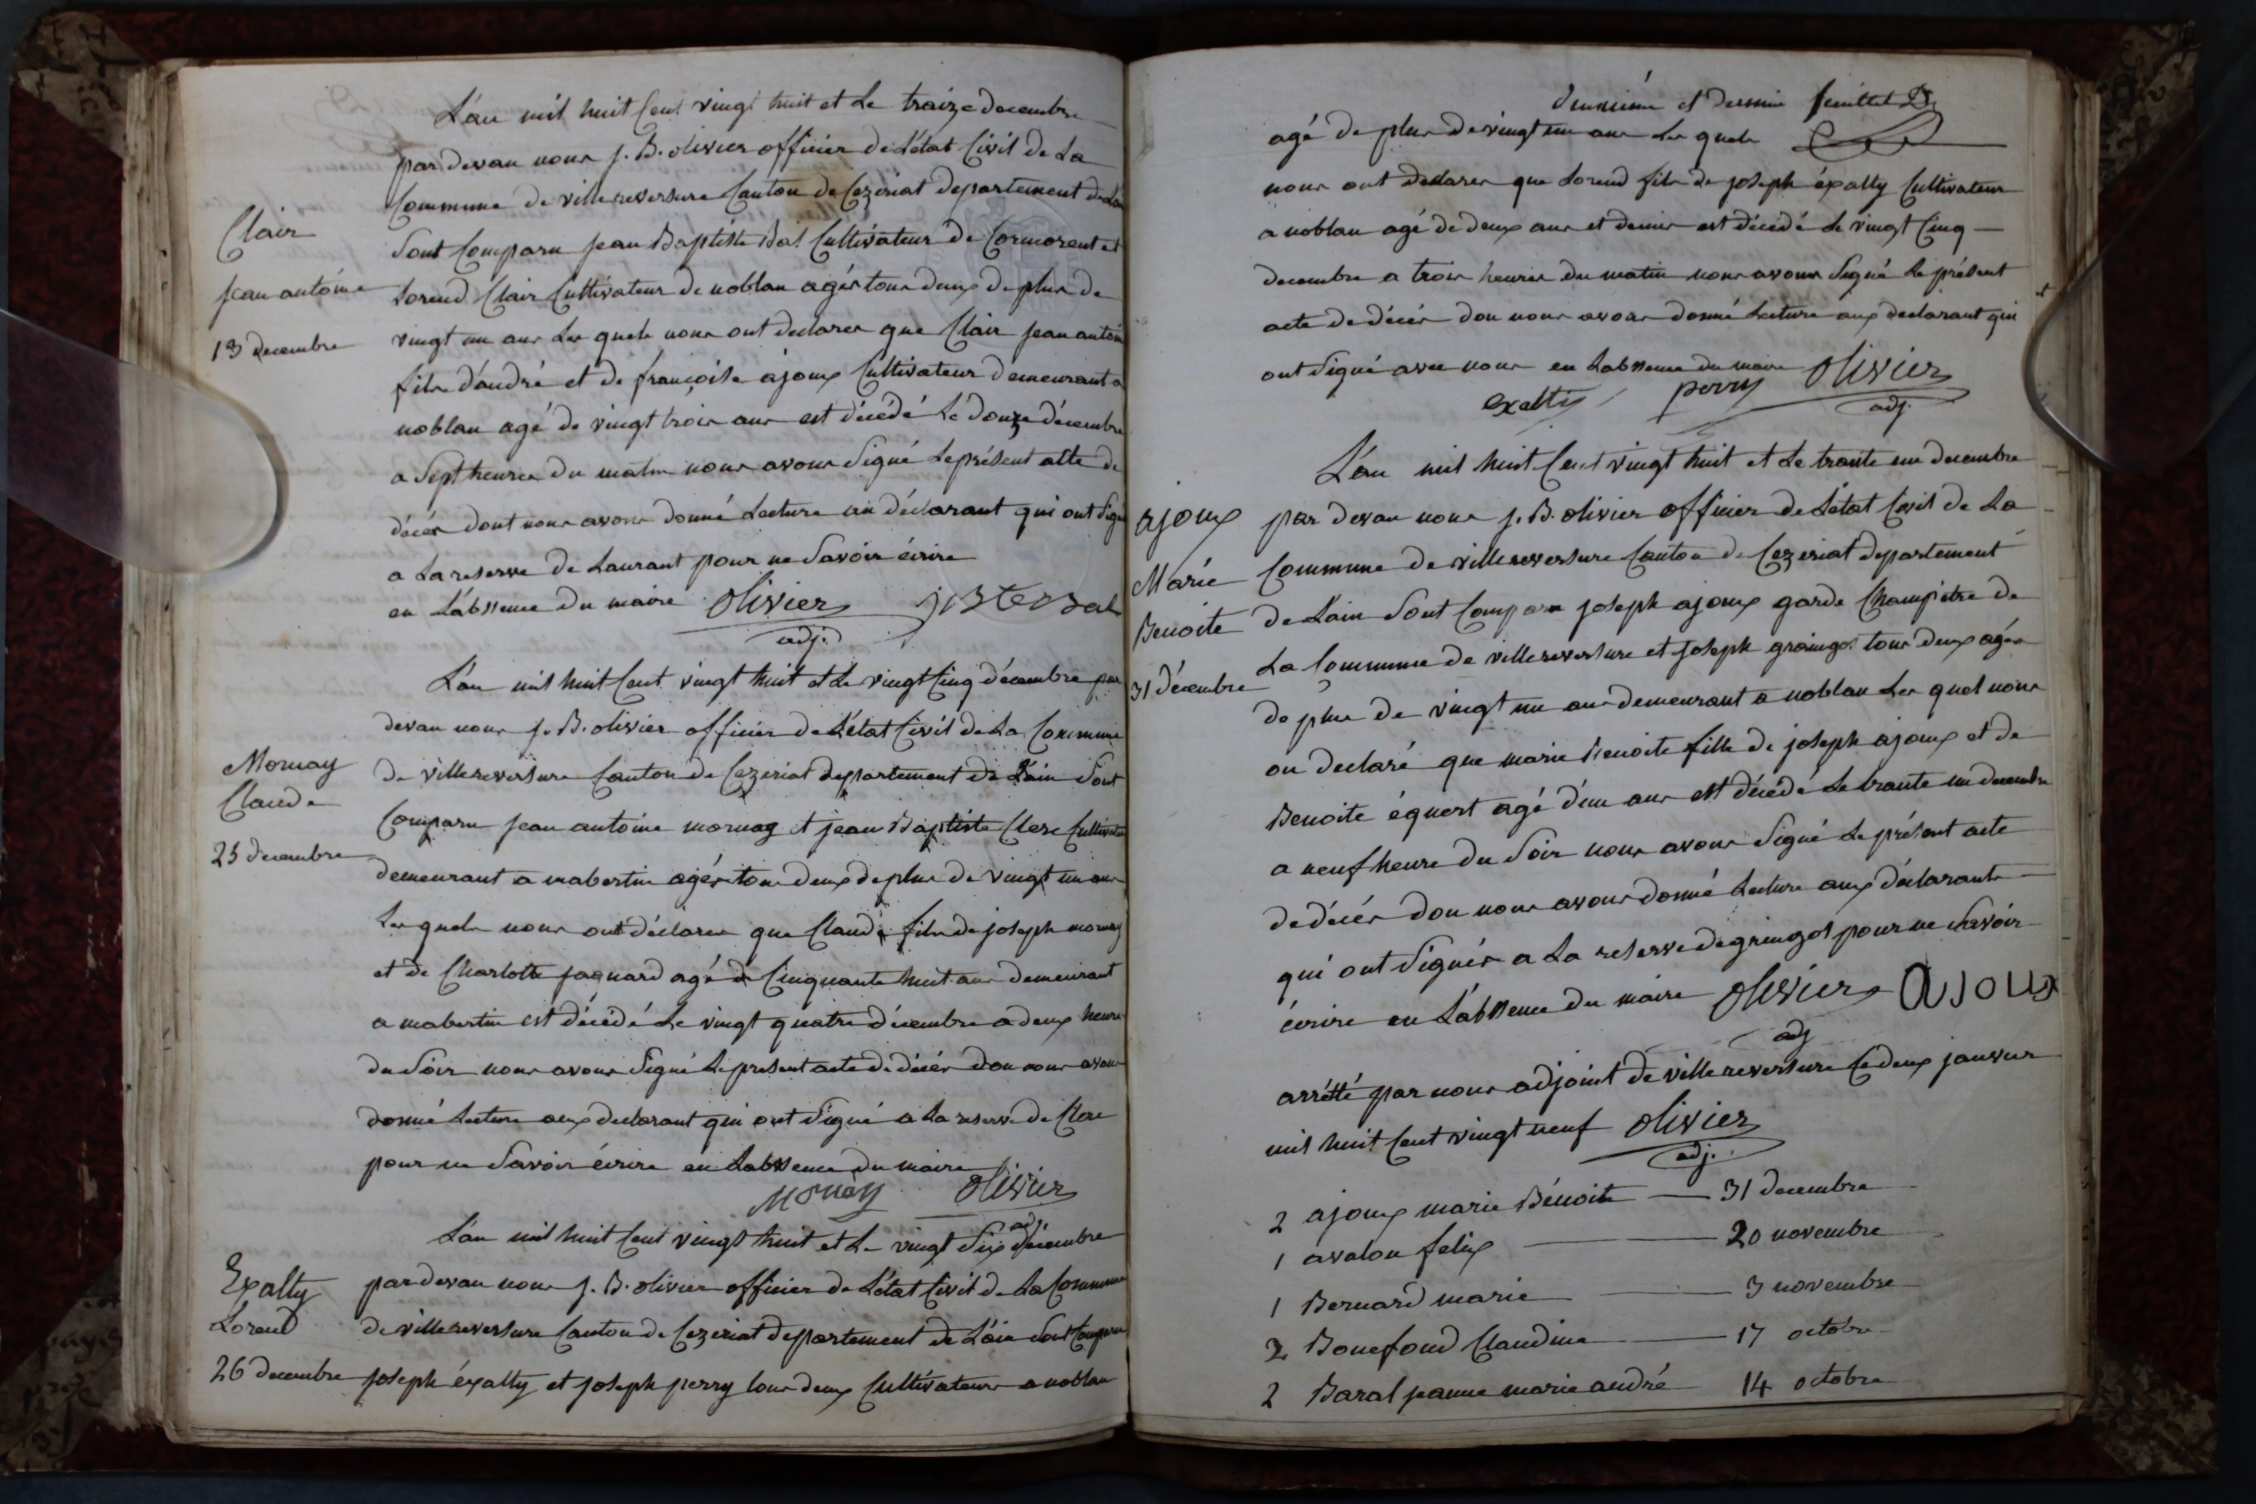 L'an mil huit Cent vingt huit et Le traize decembre
par devan nous j. B. olivier officier de L'état Civil de La
Commune de villereversure Canton de Cezeriat departement de L'ain
Clair
Sont Comparu jean Baptiste Bal Cultivateur de Cormorent et
jean antoine
Lorend Clair Cultivateur de noblan agés tous deux de plus de
13 decembre
vingt un ans Les quels nous ont declarer que Clair jean antoine
fils d'andré et de françoise ajoux Cultivateur demeurant a
noblan agé de vingt trois ans est décédé Le douze décembre
a Sept heures du matin nous avons Signé Le présent acte de
décés dont nous avons donné Lecture au déclarant qui ont Signé
a La reserve de Laurant pour ne Savoir écrire
en L'abssence du maire olivier
adj.
L'an mil huit Cent vingt huit et Le vingt Cinq décembre par
devan nous j. B. olivier officier de L'état Civil de La Commune
Mornay
de villereversure Canton de Cezeriat departement de L'ain Sont
Claude
Comparu jean antoine mornay et jean Baptiste Clerc Cultivateur
25 decembre
demeurant a mabertin agés tous deux de plus de vingt un ans
Les quels nous ont déclarer que Claude fils de joseph mornay
et de Charlotte jaquard agé de Cinquante huit ans demeurant
a mabertin est décédé Le vingt quatre décembre a deux heures
du Soir nous avons Signé Le present acte de décés dou nous avons
donné Lecture aux declarant qui ont Signé a La reserve de Clerc
pour ne Savoir écrire en Labssence du maire
olivier
adj.
L'an mil huit Cent vingt huit et Le vingt Six décembre
Exalty
par devan nous j. B. olivier officier de L'état Civil de La Commune
Lorend
de villereversure Canton de Cezeriat departement de L'ain Sont Comparu
26 decembre
joseph éxalty et joseph perry tous deux Cultivateurs a noblan
deuxième et dernier feuillet
agé de plus de vingt un ans Les quels
nous ont declarer que Lorend fils de joseph éxalty Cultivateur
a noblan agé de deux ans et demie est décédé Le vingt Cinq
decembre a trois heures du matin nous avons Signé Le présent
acte de décés dou nous avons donné Lecture aux declarant qui
ont Signé avec nous en Labssence du maire olivier
exalty perry adj.
L'an mil huit Cent vingt huit et Le trante un decembre
ajoux
par devan nous j. B. olivier officier de L'état Civil de La
Marie
Commune de villereversure Canton de Cezeriat departement
Benoite
de L'ain Sont Comparu joseph ajoux garde Champètre de
La Commune de villereversure et joseph graingot tous deux agés
31 décembre
de plus de vingt un ans demeurant a noblan Les quel nous
on declaré que marie Benoite fille de joseph ajoux et de
Benoite équert agé d'un ans est décédé Le trante un decembre
a neuf heure du Soir nous avons Signé Le présent acte
de décés dou nous avons donné Lecture aux déclarants
qui ont Signés a La reserve de gringot pour ne Savoir
écrire en L'abssence du maire olivier ajoux
adj
arrétté par nous adjoint de villereversure Le deux janvier
mil huit Cent vingt neuf olivier
adj.
2 ajoux marie Bénoite 31 decembre
1 avalon felix 20 novembre
1 Bernard marie 3 novembre
2 Bonefond Claudine 17 octobre
2 Baral jeanne marie andré 14 octobre